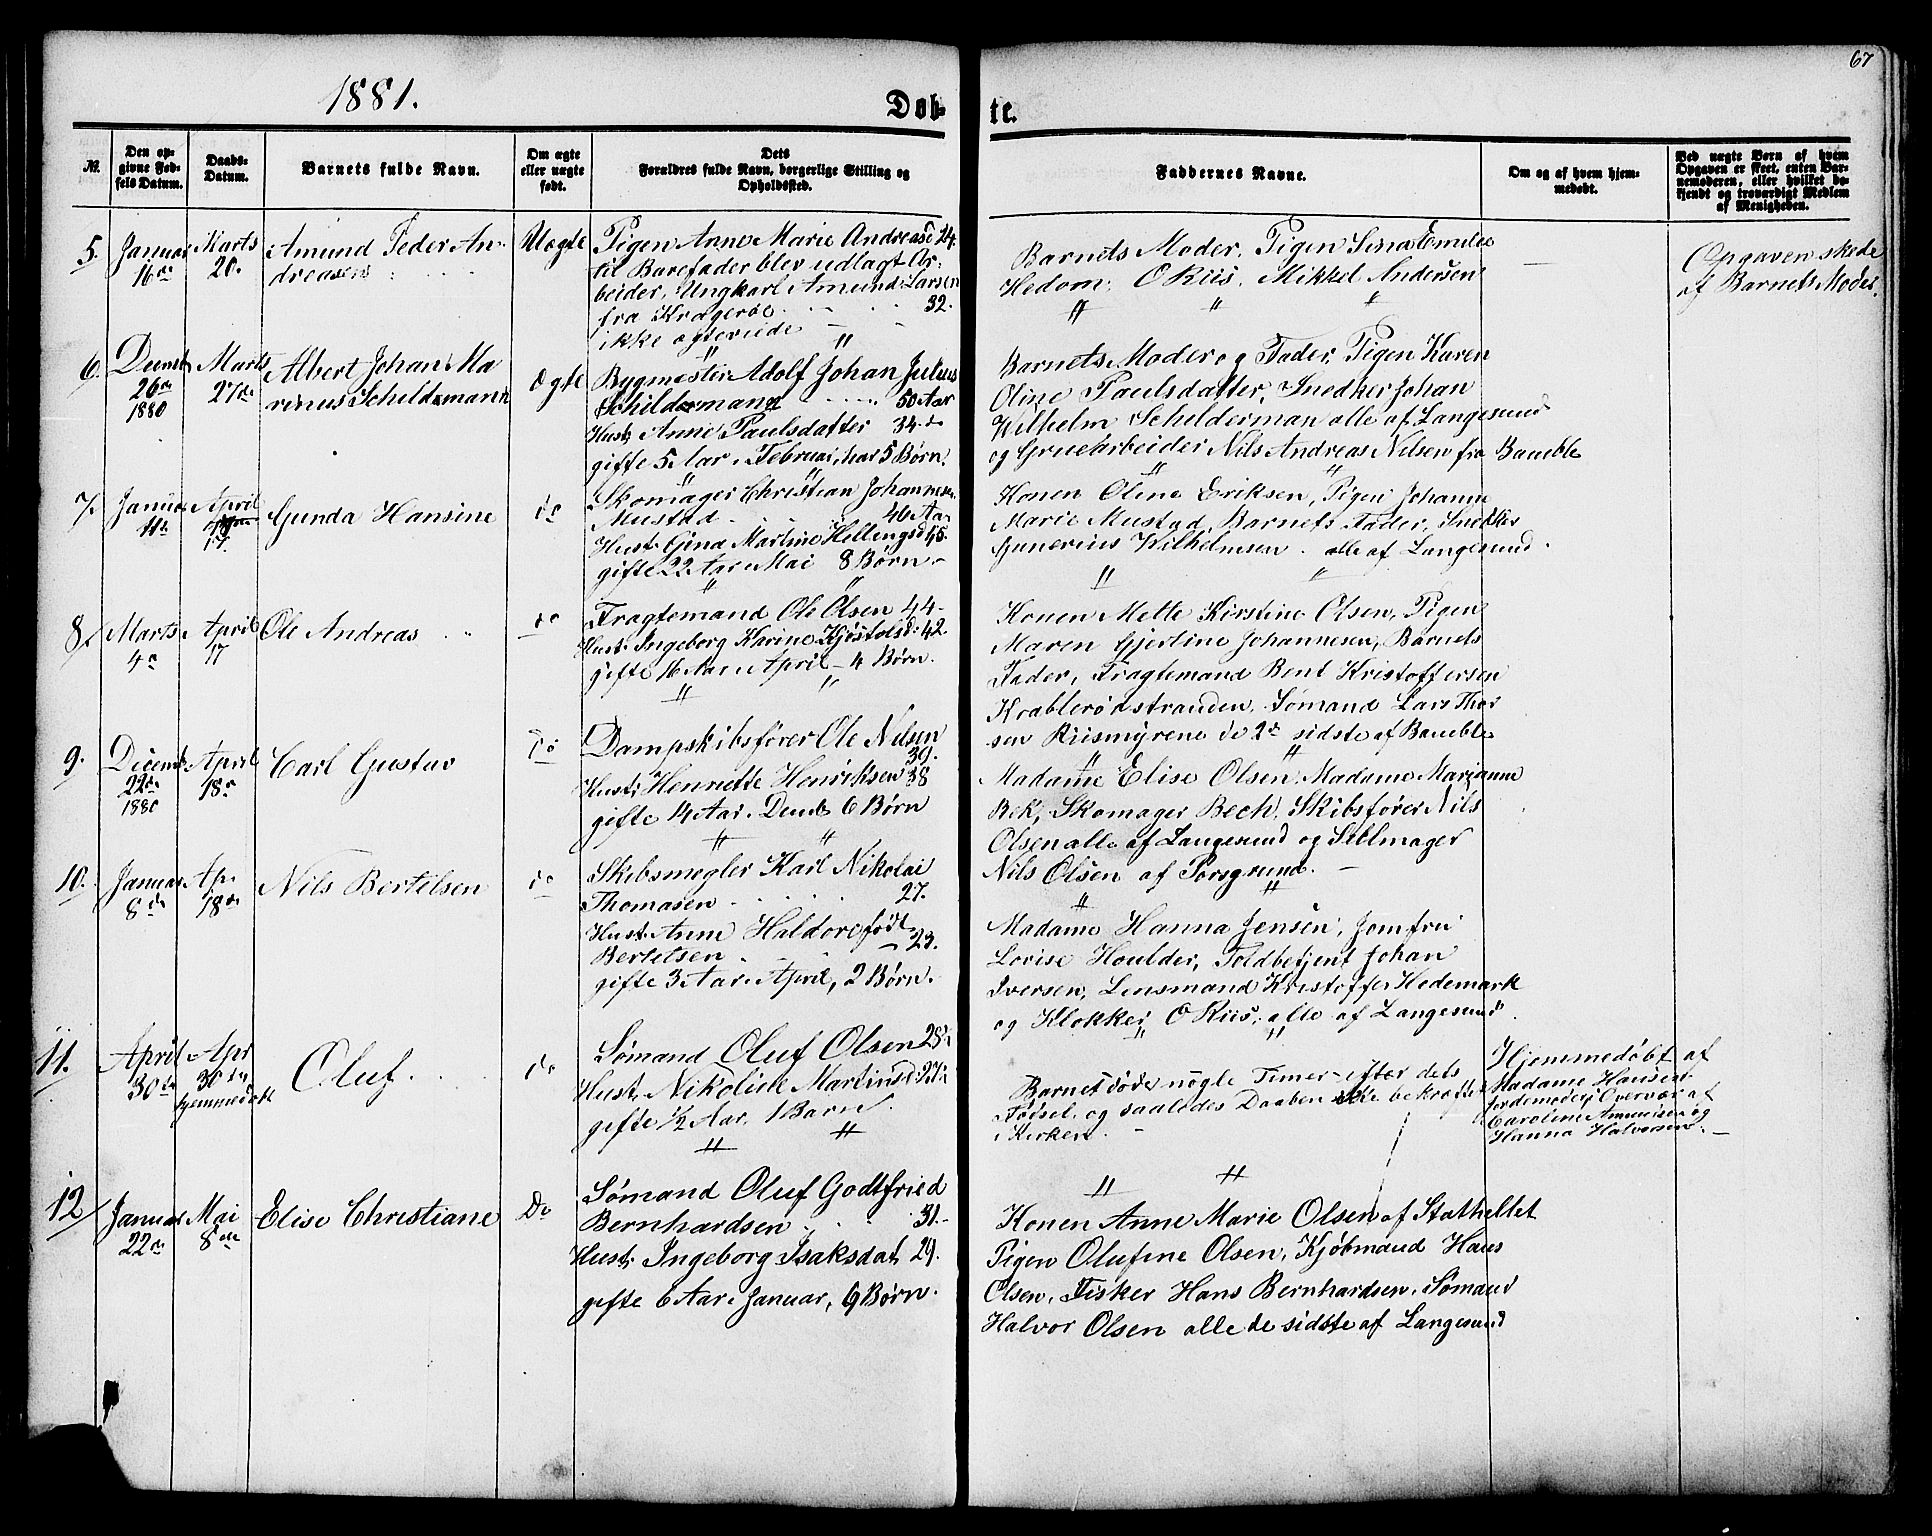 67
1881.
Døb-
te.
№.
Den op-
givne Fød-
sels Datum.
Daabs-
Datum.
Barnets fulde Navn.
Om ægte
eller uægte
født.
Dets
Forældres fulde Navn, borgerlige Stilling og
Opholdssted.
Faddernes Navne.
Om og af hvem hjem-
medøbt.
Ved uægte Børn af hvem
Opgaven er skeet, enten Bar-
nemoderen, eller hvilket be-
kjendt og troværdigt Medlem
af Menigheden.
5.
Januar
16de
Marts
20.
Amund Peder An-
dreasen
Uægte
Pigen Anne Marie Andreasd 24.
til Barnefader blev udlagt Ar-
beider, Ungkarl Amund Larsen
fra Kragerøe 32.
ikke ægteviede
Barnets Moder. Pigen Sina Emilie
Hedom. O Riis. Mikkel Andersen
—
Opgaven skede
af Barnets Moder.
6.
Decmb
26de
1880
Marts
27de
Albert Johan Ma
rinus Schildemann
Ægte
Bygmester Adolf Johan Julius
Schildemann 50 Aar
Hust. Anne Paulsdatter 34 do
gifte 5 Aar i Februar, har 5 Børn.
Barnets Moder og Fader, Pigen Karen
Oline Paulsdatter, Snedker Johan
Wilhelm Schelderman alle af Langesund
og Gruearbeider Nils Andreas Nilsen fra Bamble
7.
Januar
11te
April
17.
Gunda Hansine
do
Skomager Christian Johannesen
Mustad 46 Aar
Hust. Gina Martine Hellingsd 45.
gifte 22 Aar i Mai 8 Børn
Konen Oline Eriksen, Pigen Johanne
Marie Mustad, Barnets Fader, Snekker
Gunerius Wilhelmsen. alle af Langesund.
8.
Marts
4de
April
17
Ole Andreas
do
Fragtemand Ole Olsen 44
Hust. Ingeborg Karine Kjøstolsd: 42.
gifte 16 Aar i April 4 Børn.
Konen Mette Kirstine Olsen, Pigen
Maren Gjertine Johannesen, Barnets
Fader, Fragtemand Bent Kristoffersen
Krablerødstranden, Sømand Lars Thor
sen Riismyrene de 2de sidste af Bamble
9.
Dicemb
22de
1880
April
18de
Carl Gustav
Do
Dampskibsfører Ole Nilsen
39.
Hust. Henriette Henriksen 38
gifte 14 Aar i Decmb 6 Børn
Madame Elise Olsen. Madame Marianne
Bek, Skomager Bech, Skibsfører Nils
Olsen alle af Langesund og Seilmager
Nils Olsen af Porsgrund.
10.
Januar
8de
Apr.
18de
Nils Bertilsen
do
Skibsmægler Karl Nikolai
Thomasen 27.
Hust. Anne Haldore født
Bertelsen 23.
gifte 3 Aar i April, 2 Børn.
Madame Hanna Jensen, Jomfru
Lovise Houlder, Toldbetjent Johan
Iversen, Lensmand Kristoffer Hedemark
og Klokker O Riis; alle af Langesund.
11.
April
30te
Apr
30te
hjemmedøbt
Oluf.
do
Sømand Oluf Olsen 23½
Hust. Nikoline Martinsd
gifte ½ Aar, 1 Barn
Barnet døde nogle Timer efter dets
Fødsel, og saaledes Daaben ikke bekræftet
i Kirken.
Hjemmedøbt af
Madame Hansen
Jordemoder i Overvær af
Caroline Amundsen og
Hanna Halvorsen.
12
Januar
22de
Mai
8de
Elise Christiane
Do
Sømand Oluf Godtfried
Bernhardsen 31.
Hust. Ingeborg Isaksdat 29.
gifte 6 Aar i Januar, 6 Børn.
Konen Anne Marie Olsen af Stathellet
Pigen Olufine Olsen, Kjøbmand Hans
Olsen, Fisker Hans Bernhardsen. Sømand
Halvor Olsen alle de sidste af Langesund